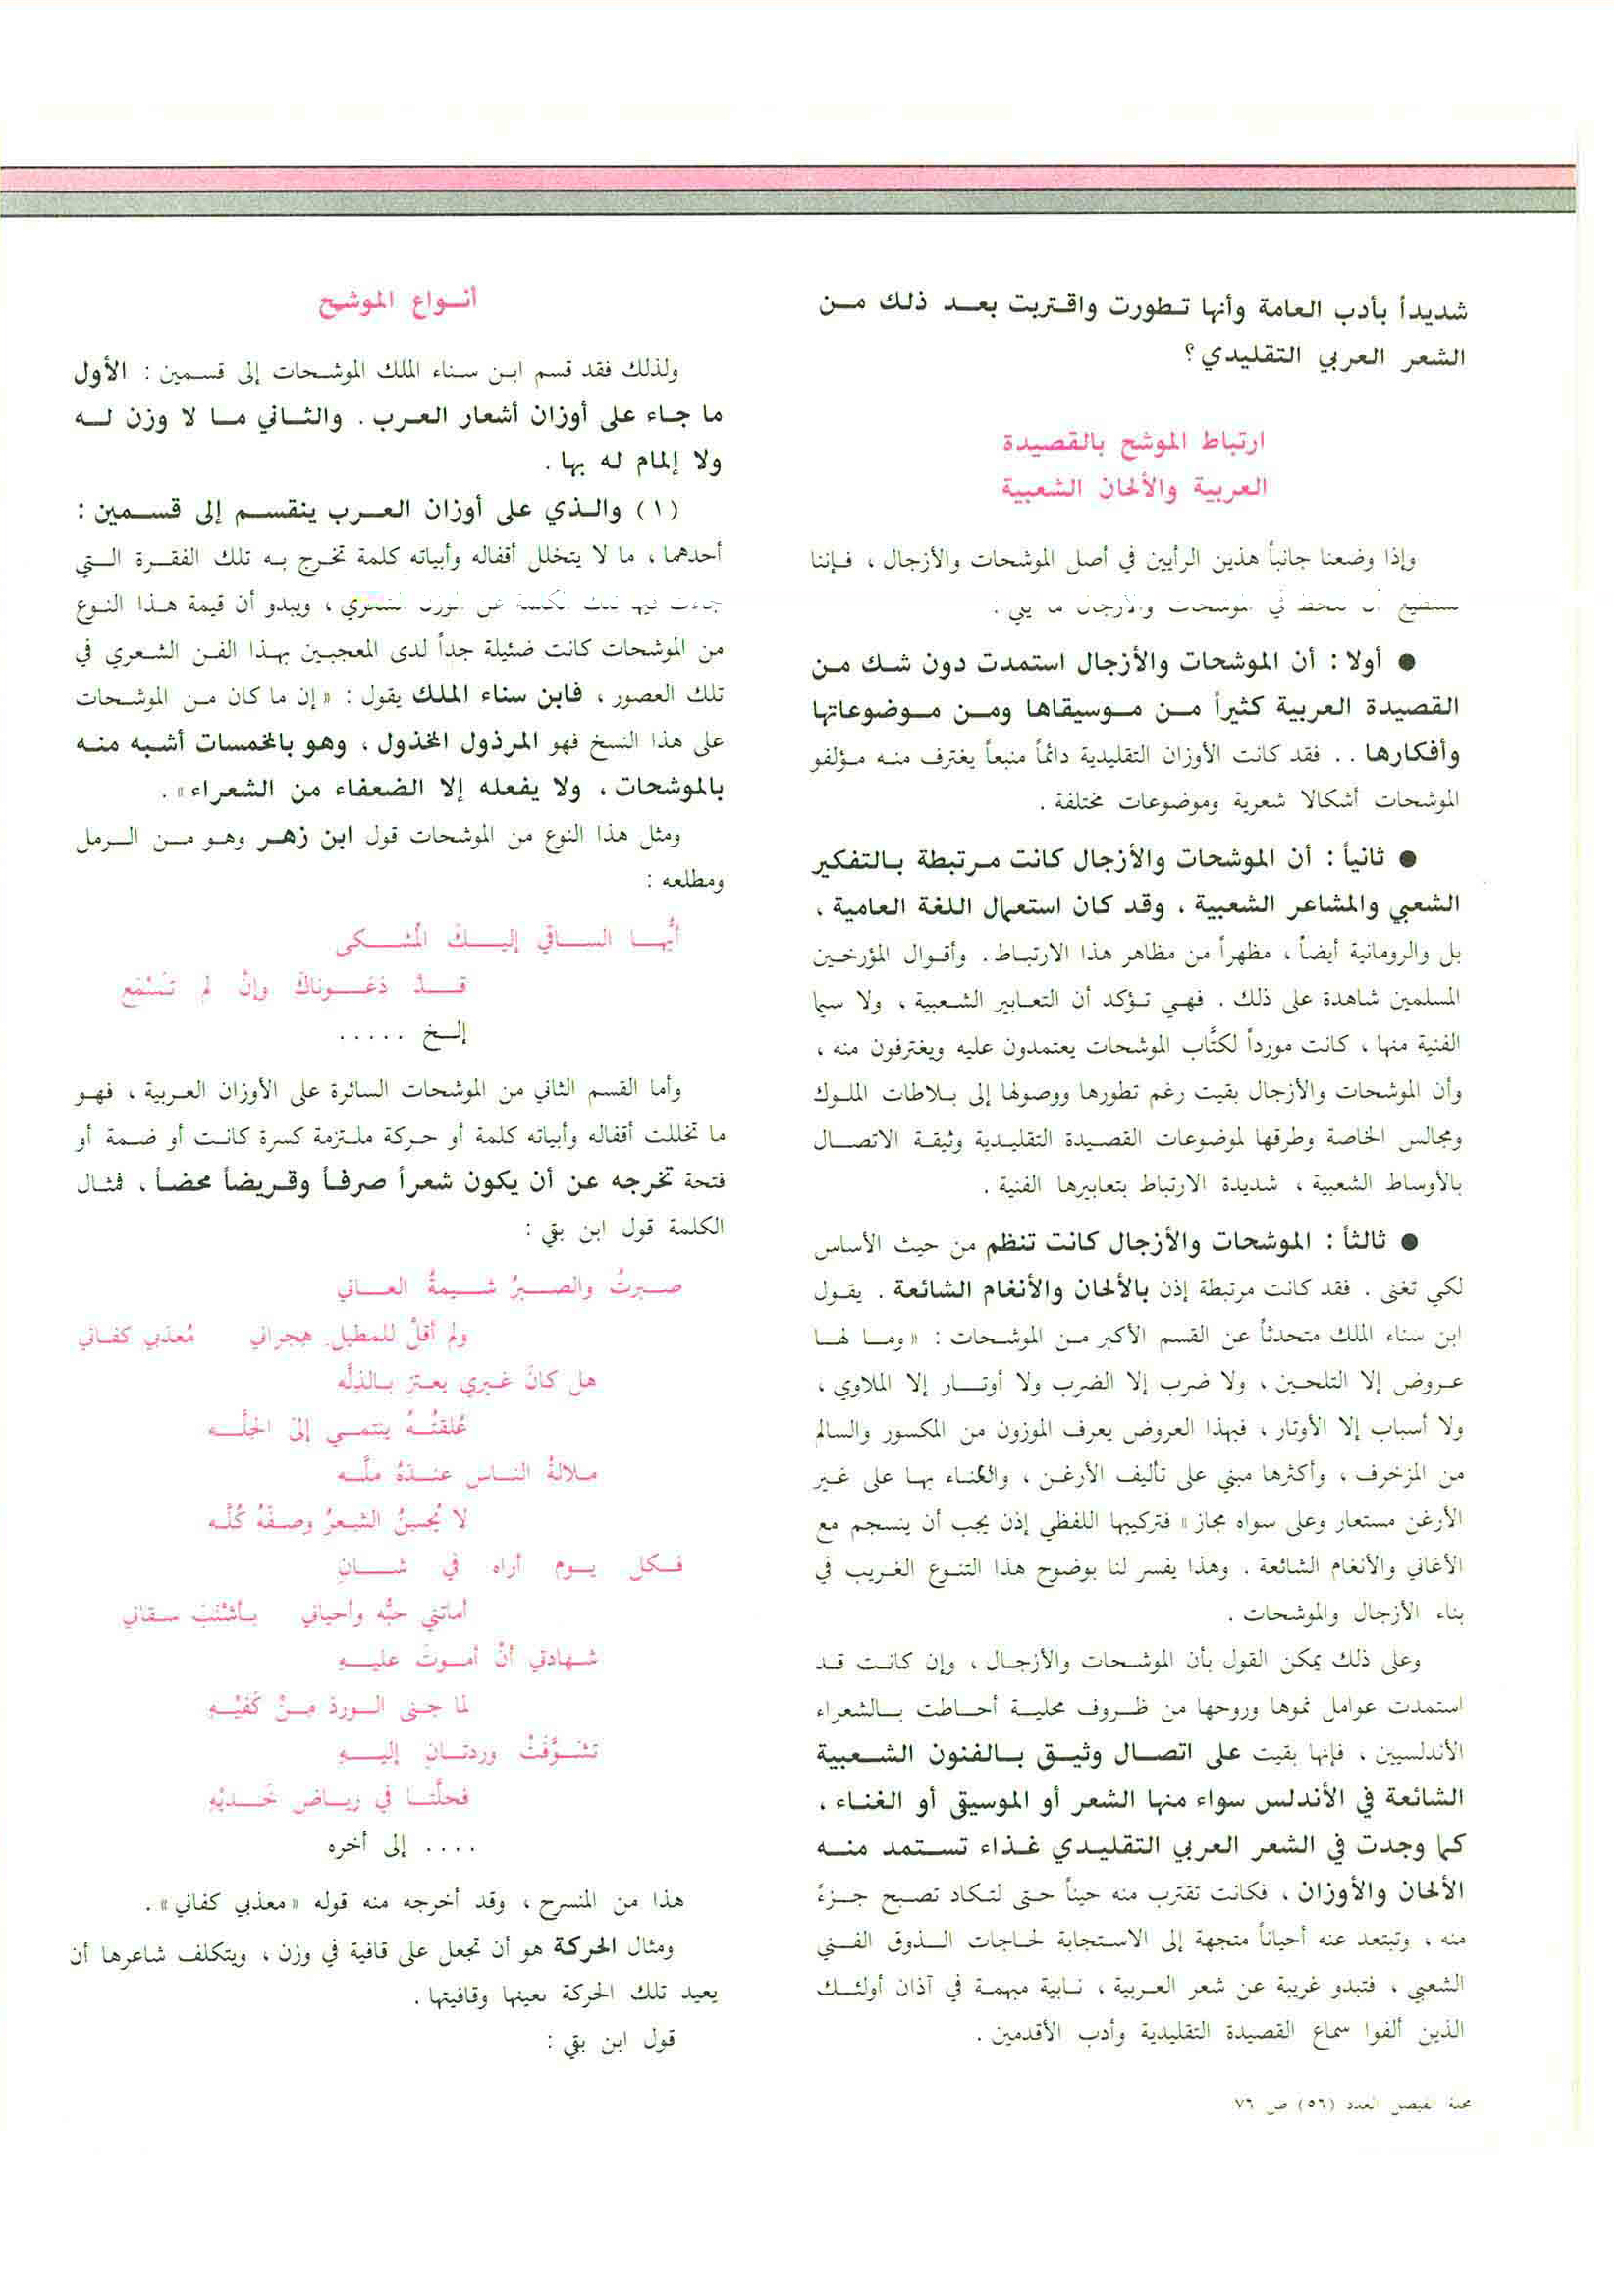 شديداً بأدب العامة وأنها تطورت واقتربت بعد ذلك من
الشعر العربي التقليدي ؟
ارتباط الموشح بالقصيدة
العربية والألحان الشعبية
وإذا وضعنا جانباً هذين الرأيين في أصل الموشحات والأزجال ، فإننا
نستطيع أن نلحظ في الموشحات والأزجال ما يلي :
● أولا : أن الموشحات والأزجال استمدت دون شك من
القصيدة العربية كثيراً من موسيقاها ومن موضوعاتها
وأفكارها .. فقد كانت الأوزان التقليدية دائماً منبعاً يغترف منه مؤلفو
الموشحات أشكالا شعرية وموضوعات مختلفة .
● ثانياً : أن الموشحات والأزجال كانت مرتبطة بالتفكير
الشعبي والمشاعر الشعبية ، وقد كان استعمال اللغة العامية ،
بل والرومانية أيضاً ، مظهراً من مظاهر هذا الارتباط . وأقوال المؤرخين
المسلمين شاهدة على ذلك . فهي تؤكد أن التعابير الشعبية ، ولا سيما
الفنية منها ، كانت مورداً لكتَّاب الموشحات يعتمدون عليه ويغترفون منه ،
وأن الموشحات والأزجال بقيت رغم تطورها ووصولها إلى بلاطات الملوك
ومجالس الخاصة وطرقها لموضوعات القصيدة التقليدية وثيقة الاتصال
بالأوساط الشعبية ، شديدة الارتباط بتعابيرها الفنية .
● ثالثاً : الموشحات والأزجال كانت تنظم من حيث الأساس
لكي تغنى . فقد كانت مرتبطة إذن بالألحان والأنغام الشائعة . يقول
ابن سناء الملك متحدثاً عن القسم الأكبر من الموشحات : « وما لها
عروض إلا التلحين ، ولا ضرب إلا الضرب ولا أوتار إلا الملاوي ،
ولا أسباب إلا الأوتار ، فبهذا العروض يعرف الموزون من المكسور والسالم
من المزخرف ، وأكثرها مبني على تأليف الأرغن ، والغناء بها على غير
الأرغن مستعار وعلى سواه مجاز » فتركيبها اللفظي إذن يجب أن ينسجم مع
الأغاني والأنغام الشائعة . وهذا يفسر لنا بوضوح هذا التنوع الغريب في
بناء الأزجال والموشحات .
وعلى ذلك يمكن القول بأن الموشحات والأزجال ، وإن كانت قد
استمدت عوامل نموها وروحها من ظروف محلية أحاطت بالشعراء
الأندلسيين ، فإنها بقيت على اتصال وثيق بالفنون الشعبية
الشائعة في الأندلس سواء منها الشعر أو الموسيقى أو الغناء ،
كما وجدت في الشعر العربي التقليدي غذاء تستمد منه
الألحان والأوزان ، فكانت تقترب منه حيناً حتى لتكاد تصبح جزءً
منه ، وتبتعد عنه أحياناً متجهة إلى الاستجابة لحاجات الذوق الفني
الشعبي ، فتبدو غريبة عن شعر العربية ، نابية مبهمة في آذان أولئك
الذين ألفوا سماع القصيدة التقليدية وأدب الأقدمين .
أنواع الموشح
ولذلك فقد قسم ابن سناء الملك الموشحات إلى قسمين : الأول
ما جاء على أوزان أشعار العرب . والثاني ما لا وزن له
ولا إلمام له بها .
(١) والذي على أوزان العرب ينقسم إلى قسمين :
أحدهما ، ما لا يتخلل أقفاله وأبياته كلمة تخرج به تلك الفقرة التي
جاءت فيها تلك الكلمة عن الوزن الشعري ، ويبدو أن قيمة هذا النوع
من الموشحات كانت ضئيلة جداً لدى المعجبين بهذا الفن الشعري في
تلك العصور ، فابن سناء الملك يقول : « إن ما كان من الموشحات
على هذا النسخ فهو المرذول المخذول ، وهو بالمخمسات أشبه منه
بالموشحات ، ولا يفعله إلا الضعفاء من الشعراء » .
ومثل هذا النوع من الموشحات قول ابن زهر وهو من الرمل
ومطلعه :
أيُّها الساقي إليكَ المُشتكى
قدْ دَعَوناكَ وإنْ لم تَسْمَعِ
إلخ .....
وأما القسم الثاني من الموشحات السائرة على الأوزان العربية ، فهو
ما تخللت أقفاله وأبياته كلمة أو حركة ملتزمة كسرة كانت أو ضمة أو
فتحة تخرجه عن أن يكون شعراً صرفاً وقريضاً محضاً ، فمثال
الكلمة قول ابن بقي :
صبرتُ والصبرُ شيمةُ العاني
ولم أقلْ للمطيلِ هجراني مُعذبي كفاني
هل كانَ غيري يعتز بالذلَّه
عُلقتُهُ ينتمي إلىَ الجلَّه
ملالةُ الناس عندَهُ ملَّه
لا يُحسنُ الشعرُ وصفَهُ كُلَّه
فكل يوم أراه في شانِ
أماتني حبُّه وأحياني بأشْنَبَ سقاني
شهادتي أنْ أموتَ عليهِ
لما جنى الوردَ مِنْ كَفَّيْهِ
تشوَّفَتْ وردتانِ إليهِ
فحلَّتا في رياض خَديْهِ
.... إلى أخره
هذا من المنسرح ، وقد أخرجه منه قوله « معذبي كفاني » .
ومثال الحركة هو أن تجعل على قافية في وزن ، ويتكلف شاعرها أن
يعيد تلك الحركة بعينها وقافيتها .
قول ابن بقي :
مجلة الفيصل العدد (٥٦) ص ٧٦